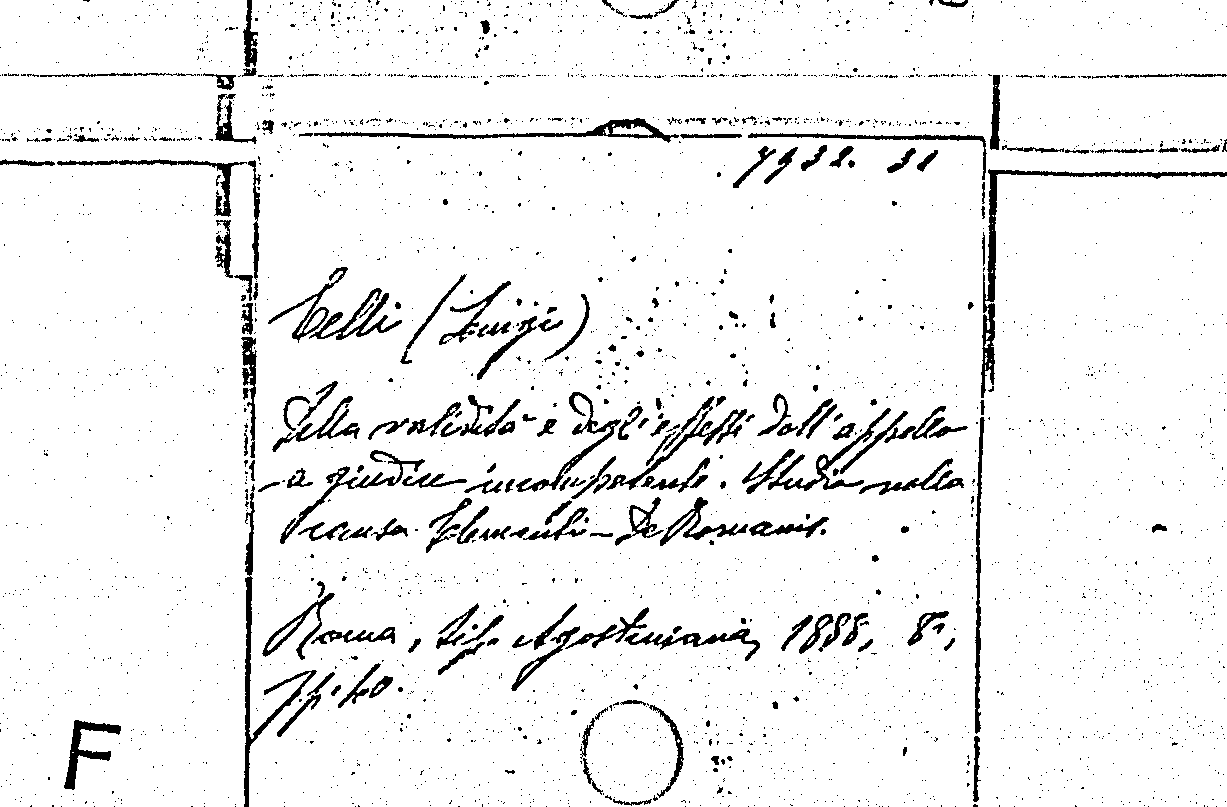 7932. 31
Celli (Luigi)
Della validità e degli effetti dell'appello
a giudice incompetente. Studio nella
causa Clementi - De Romanis.
Roma, tip. Agostiniana, 1888, 8°,
pp. 40.
F